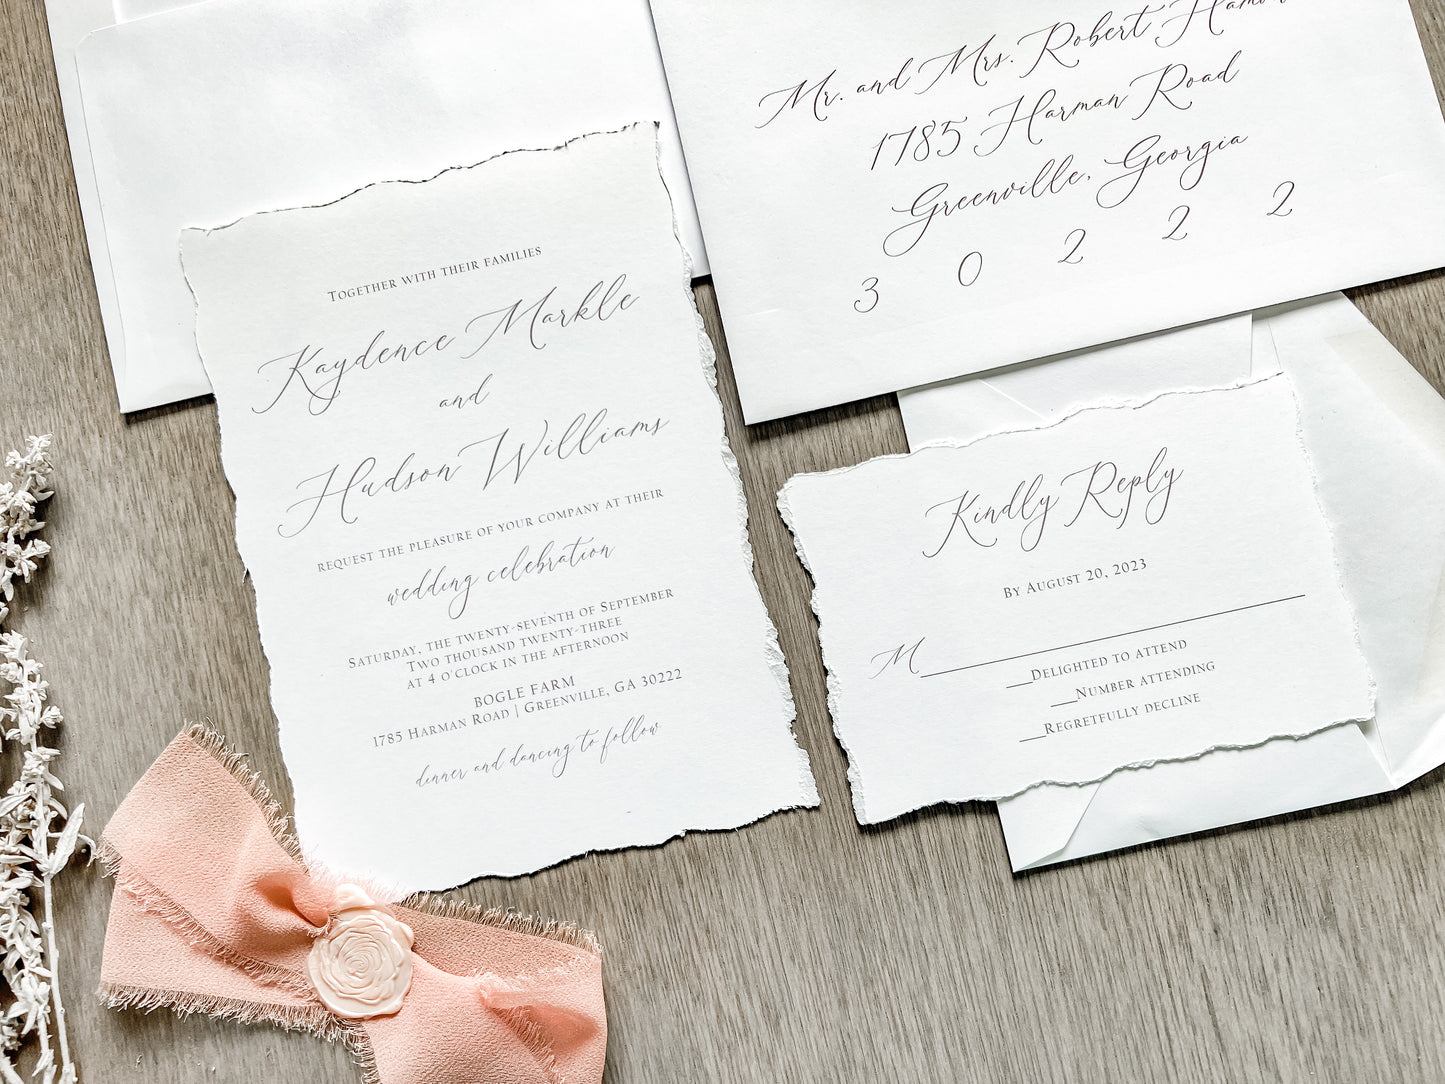 Together with their families
Kaydence Markle
and
Hudson Williams
request the pleasure of your company at their
wedding celebration
Saturday, the twenty-seventh of September
Two thousand twenty-three
at 4 o'clock in the afternoon
BOGLE FARM
1785 Harman Road | Greenville, GA 30222
dinner and dancing to follow
Mr. and Mrs. Robert
1785 Harman Road
Greenville, Georgia
3 0 2 2 2
Kindly Reply
By August 20, 2023
M
__Delighted to attend
__Number attending
__Regretfully decline